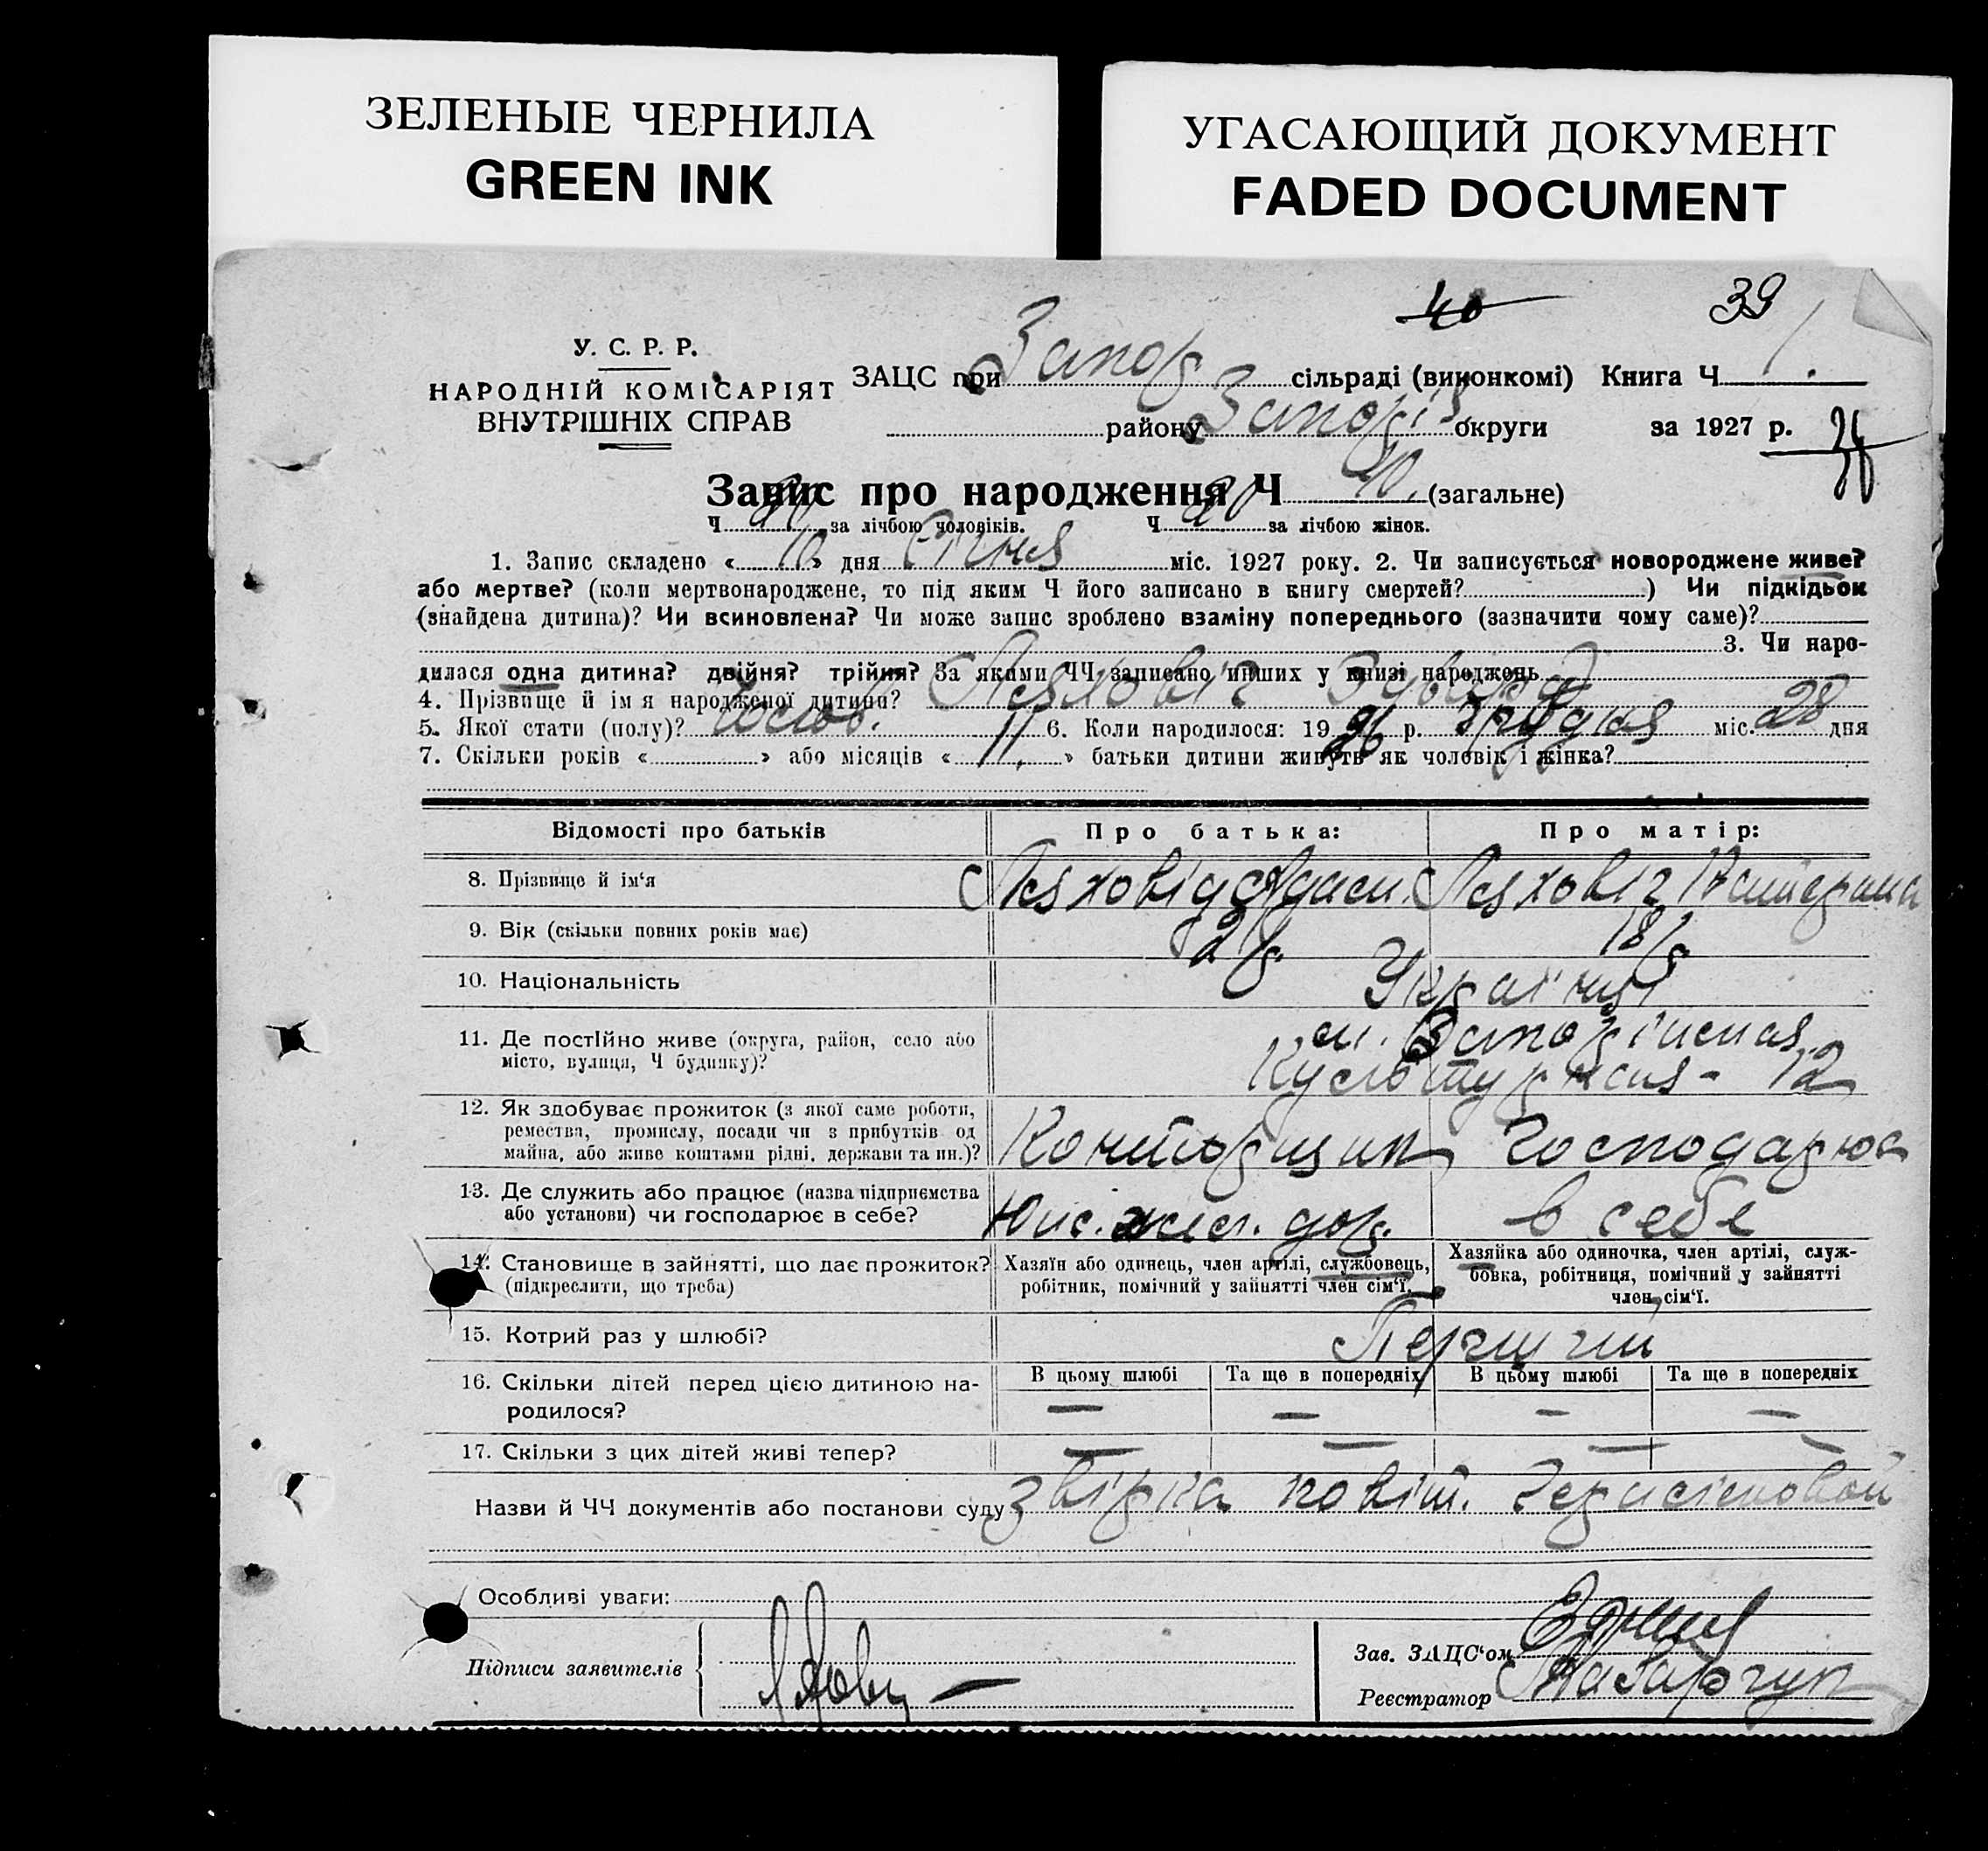 ЗЕЛЕНЫЕ ЧЕРНИЛА
GREEN INK
УГАСАЮЩИЙ ДОКУМЕНТ
FADED DOCUMENT
40 39
У. С. Р. Р.
НАРОДНІЙ КОМІСАРІЯТ
ВНУТРІШНІХ СПРАВ
ЗАЦС при Запор сільраді (виконкомі) Книга Ч 1.
району Запоріз округи за 1927 р.
Запис про народження Ч 40. (загальне)
Ч 20 за лічбою чоловіків. Ч 20 за лічбою жінок.
1. Запис складено « 10 » дня Січня міс. 1927 року. 2. Чи записується новороджене живе?
або мертве? (коли мертвонароджене, то під яким Ч його записано в книгу смертей? ) Чи підкідьок
(знайдена дитина)? Чи всиновлена? Чи може запис зроблено взаміну попереднього (зазначити чому саме)?
3. Чи наро-
дилася одна дитина? двійня? трійня? За якими ЧЧ записано инших у книзі народжень
4. Прізвище й ім я народженої дитини? Ляховіч
5. Якої стати (полу)? Чолов. 6. Коли народилося: 19 26 р. Грудня міс. 28 дня
7. Скільки років « » або місяців « 11. » батьки дитини живуть як чоловік і жінка?
Відомості про батьків Про батька: Про матір:
8. Прізвище й ім‘я Ляховіч Адам. Ляховіч Катерина
9. Вік (скільки повних років має) 18 р
10. Національність Українці
11. Де постійно живе (округа, район, село або
місто, вулиця, Ч будинку)? м. Запоріжжя 12
12. Як здобуває прожиток (з якої саме роботи,
ремества, промислу, посади чи з прибутків од
майна, або живе коштами рідні, держави та ин.)? Конторщик Господарює
13. Де служить або працює (назва підприємства
або установи) чи господарює в себе? дор. в себе
14. Становище в зайнятті, що дає прожиток?
(підкреслити, що треба)
Хазяїн або одинець, член артілі, службовець,
робітник, помічний у зайнятті член сім‘ї.
Хазяйка або одиночка, член артілі, служ-
бовка, робітниця, помічний у зайнятті
член сім‘ї.
15. Котрий раз у шлюбі? Перший
16. Скільки дітей перед цією дитиною на-
родилося?
В цьому шлюбі Та ще в попередніх В цьому шлюбі Та ще в попередніх
— — — —
17. Скільки з цих дітей живі тепер? — — — —
Назви й ЧЧ документів або постанови суду
Особливі уваги:
Підписи заявителів
Зав. ЗАЦС‘ом
Реєстратор